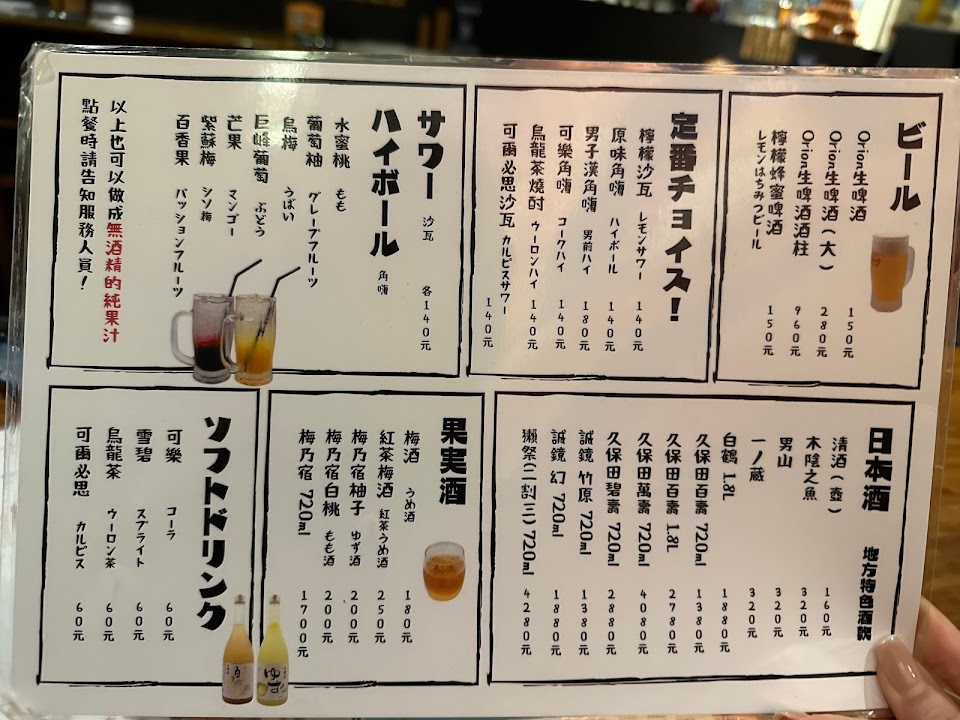 ビール
Orion生啤酒 150元
Orion生啤酒(大) 280元
Orion生啤酒酒柱 960元
檸檬蜂蜜啤酒 レモンはちみつビール 150元
定番チョイス!
檸檬沙瓦 レモンサワー 140元
原味角嗨 ハイボール 140元
男子漢角嗨 男前ハイ 180元
可樂角嗨 コークハイ 140元
烏龍茶燒酎 ウーロンハイ 140元
可爾必思沙瓦 カルピスサワー 140元
サワー 沙瓦 各140元
ハイボール 角嗨
水蜜桃 もも
葡萄柚 グレープフルーツ
烏梅 うばい
巨峰葡萄 ぶどう
芒果 マンゴー
紫蘇梅 シソ梅
百香果 パッションフルーツ
以上也可以做成無酒精的純果汁
點餐時請告知服務人員!
日本酒 地方特色酒款
清酒(壺) 160元
本陰之魚 320元
男山 320元
一ノ蔵 320元
白鶴 1.8L 1880元
久保田百壽 720ml 1380元
久保田百壽 1.8L 2780元
久保田萬壽 720ml 4080元
久保田碧壽 720ml 2880元
誠鏡 竹原 720ml 1380元
誠鏡 幻 720ml 1880元
獺祭(二割三) 720ml 4280元
果実酒
梅酒 うめ酒 180元
紅茶梅酒 紅茶うめ酒 250元
梅乃宿柚子 ゆず酒 200元
梅乃宿白桃 もも酒 200元
梅乃宿 720ml 1700元
ソフトドリンク
可樂 コーラ 60元
雪碧 スプライト 60元
烏龍茶 ウーロン茶 60元
可爾必思 カルピス 60元
ゆず